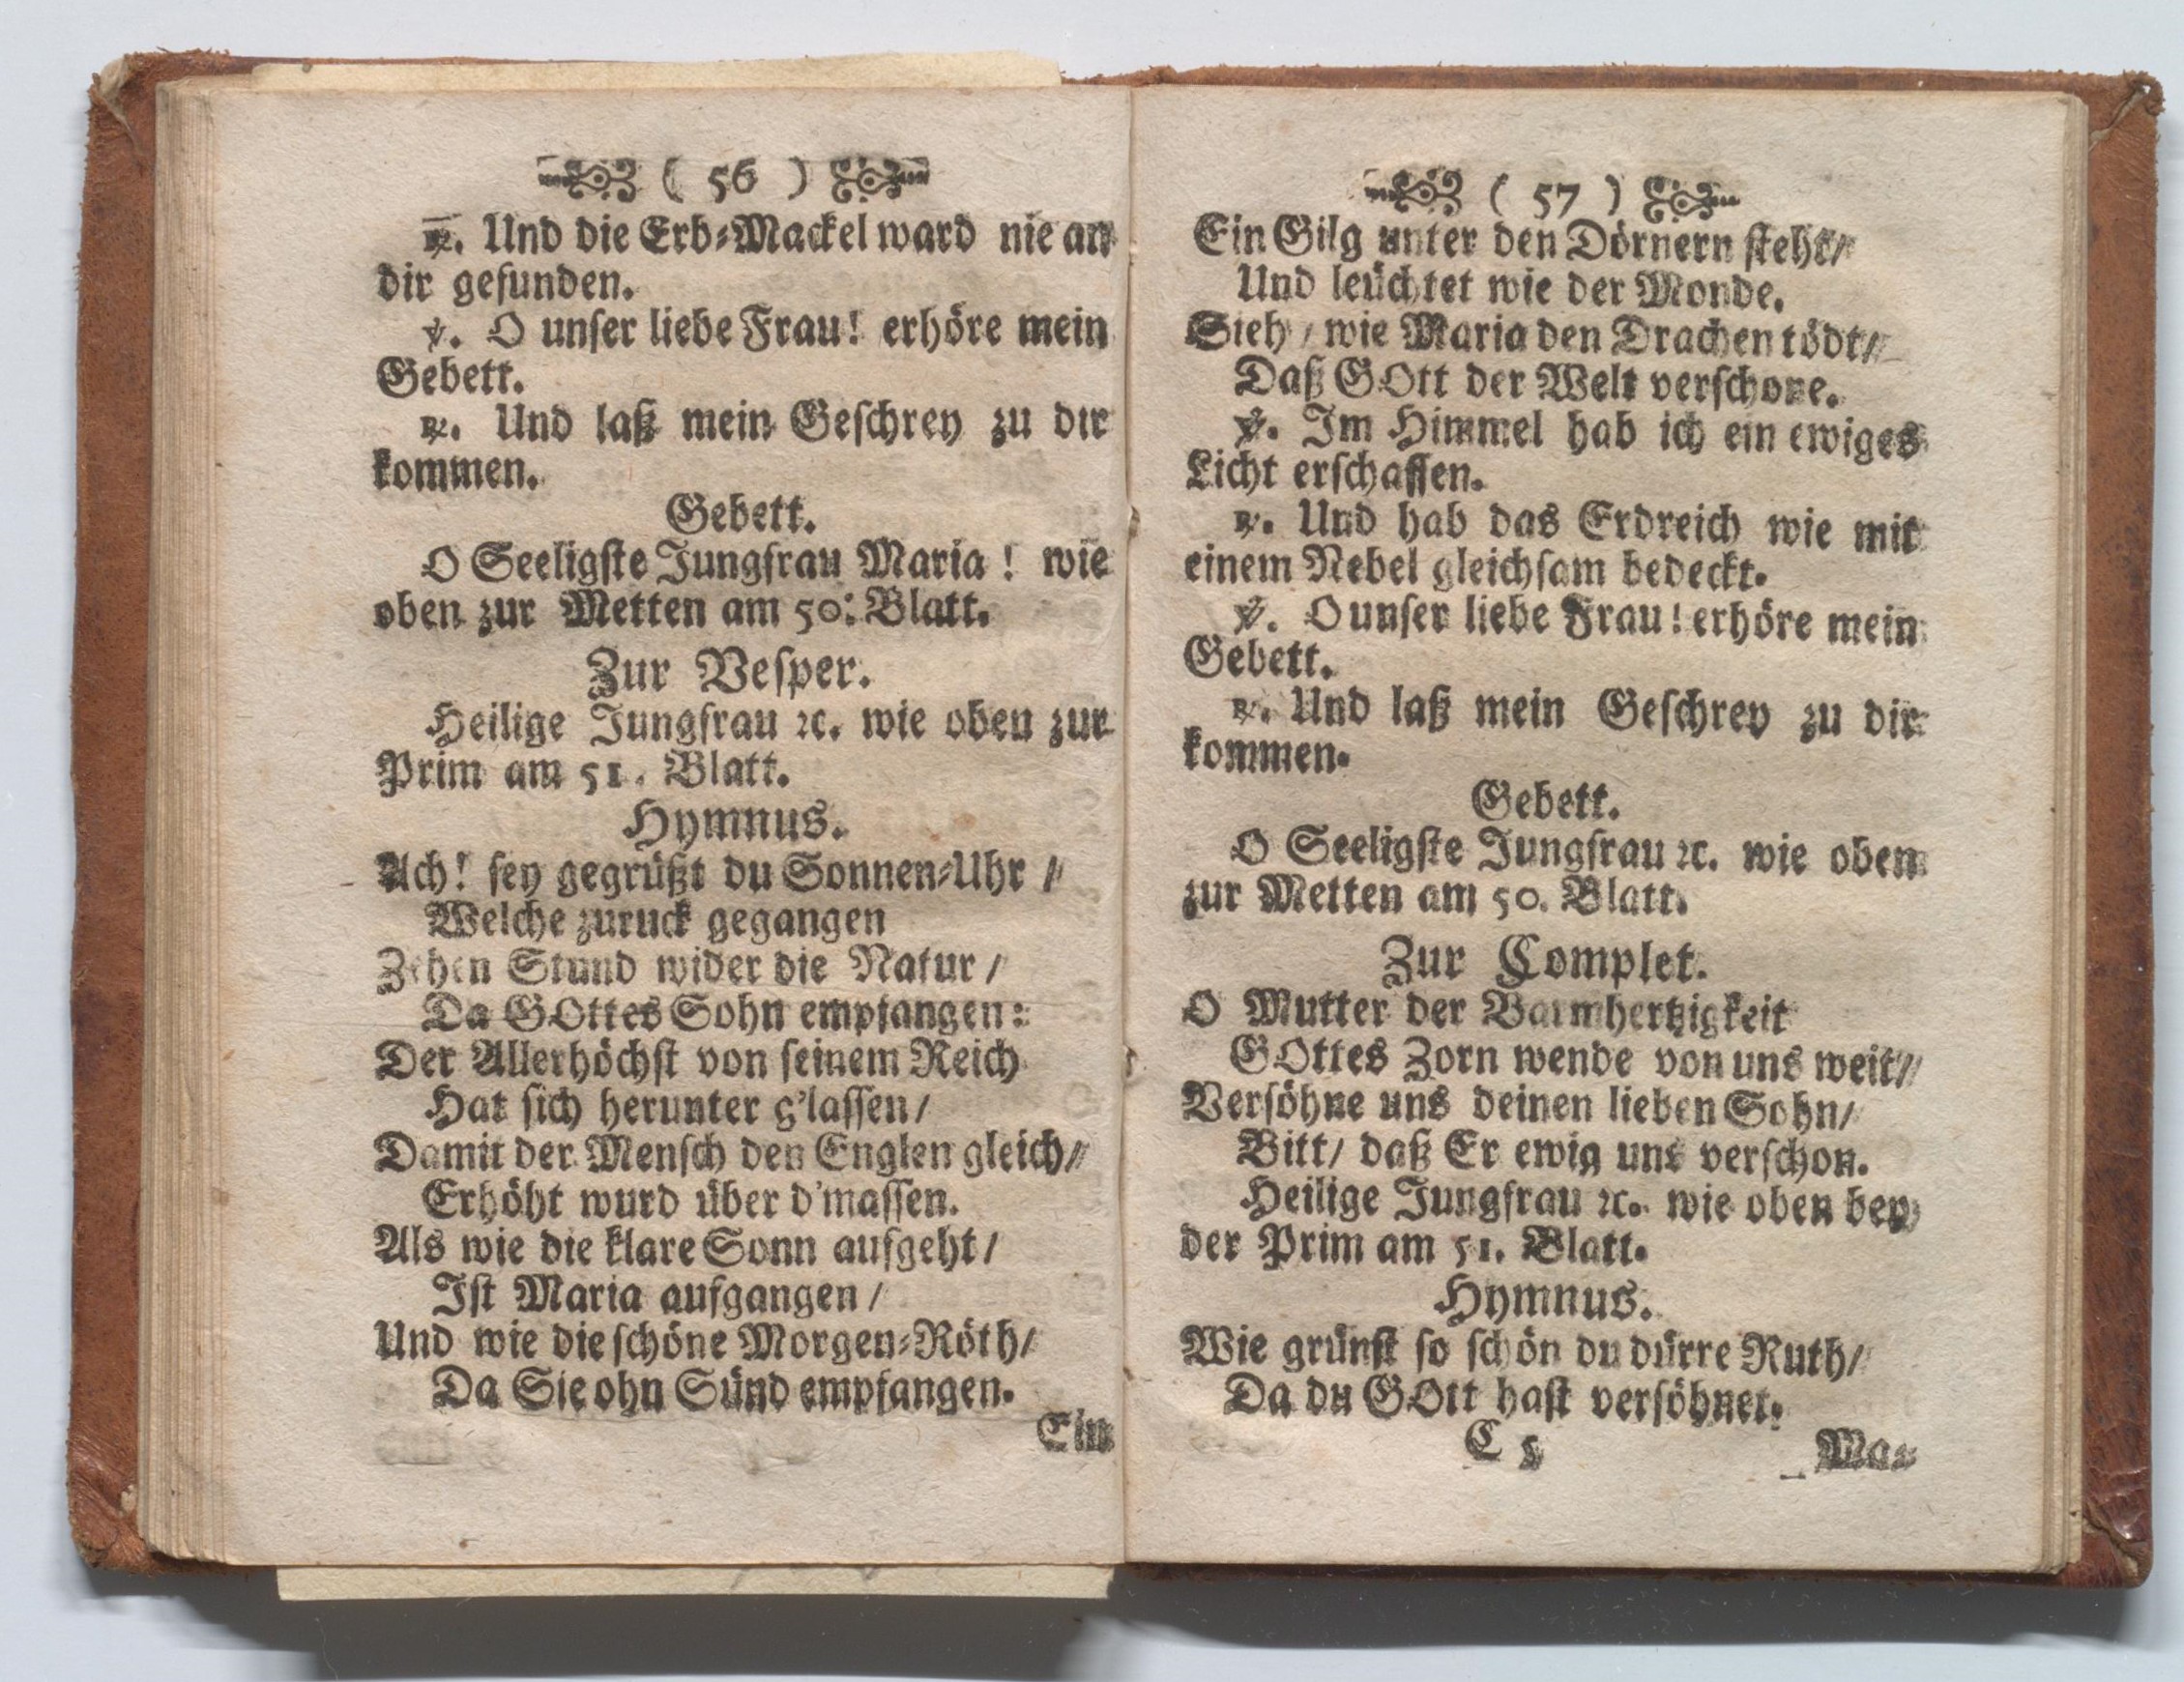 ( 56 )
℟. Und die Erb-Mackel ward nie an
dir gefunden.
℣. O unser liebe Frau! erhöre mein
Gebett.
℟. Und laß mein Geschrey zu dir
kommen.
Gebett.
O Seeligste Jungfrau Maria! wie
oben zur Metten am 50. Blatt.
Zur Vesper.
Heilige Jungfrau ꝛc. wie oben zur
Prim am 51. Blatt.
Hymnus.
Ach! sey gegrüßt du Sonnen-Uhr /
Welche zuruck gegangen
Zehen Stund wider die Natur /
Da GOttes Sohn empfangen:
Der Allerhöchst von seinem Reich
Hat sich herunter g'lassen /
Damit der Mensch den Englen gleich /
Erhöht wurd über d'massen.
Als wie die klare Sonn aufgeht /
Ist Maria aufgangen /
Und wie die schöne Morgen-Röth /
Da Sie ohn Sünd empfangen.
Ein
( 57 )
Ein Gilg unter den Dörnern steht /
Und leüchtet wie der Monde.
Sieh / wie Maria den Drachen tödt /
Daß GOtt der Welt verschone.
℣. Im Himmel hab ich ein ewiges
Licht erschaffen.
℟. Und hab das Erdreich wie mit
einem Nebel gleichsam bedeckt.
℣. O unser liebe Frau! erhöre mein
Gebett.
℟. Und laß mein Geschrey zu dir
kommen.
Gebett.
O Seeligste Jungfrau ꝛc. wie oben
zur Metten am 50. Blatt.
Zur Complet.
O Mutter der Barmhertzigkeit
GOttes Zorn wende von uns weit /
Versöhne uns deinen lieben Sohn /
Bitt / daß Er ewig uns verschon.
Heilige Jungfrau ꝛc. wie oben bey
der Prim am 51. Blatt.
Hymnus.
Wie grünst so schön du dürre Ruth /
Da du GOtt hast versöhnet.
C 5 Ma-